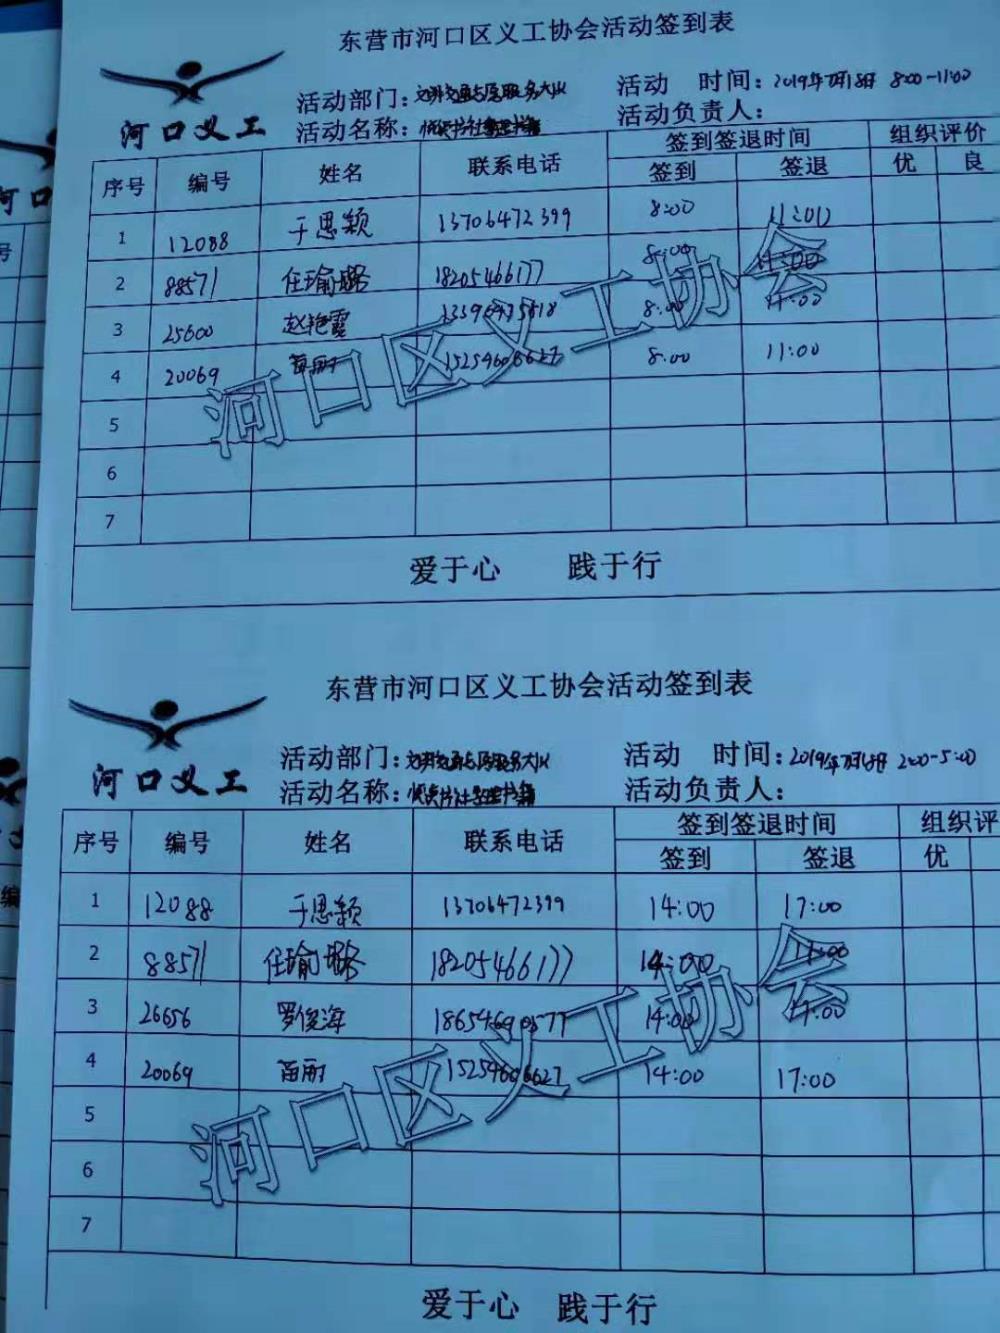 东营市河口区义工协会活动签到表
河口义工
活动部门：文明交通志愿服务大队 活动 时间：2019年7月18日 8:00-11:00
活动名称：悦读书社整理书籍 活动负责人：
序号 编号 姓名 联系电话 签到签退时间 组织评价
签到 签退 优 良
1 12088 于思颖 13706472399 8:00 11:00
2 88571 任瑜璐 18205466177 8:00 11:00
3 25600 赵艳霞 8:00 11:00
4 20069 苗丽 15254606627 8:00 11:00
5
6
7
爱于心 践于行
河口区义工协会
东营市河口区义工协会活动签到表
河口义工
活动部门：文明交通志愿服务大队 活动 时间：2019年7月18日 2:00-5:00
活动名称：悦读书社整理书籍 活动负责人：
序号 编号 姓名 联系电话 签到签退时间 组织评
签到 签退 优
1 12088 于思颖 13706472399 14:00 17:00
2 88571 任瑜璐 18205466177 14:00 17:00
3 26656 罗俊海 14:00 17:00
4 20069 苗丽 15254606627 14:00 17:00
5
6
7
爱于心 践于行
河口区义工协会